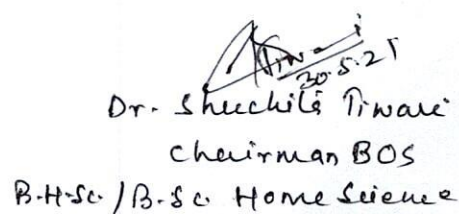 Tiwari
30.5.25
Dr. Shuchita Tiwari
Chairman BOS
B.H.Sc./B.Sc. Home Science